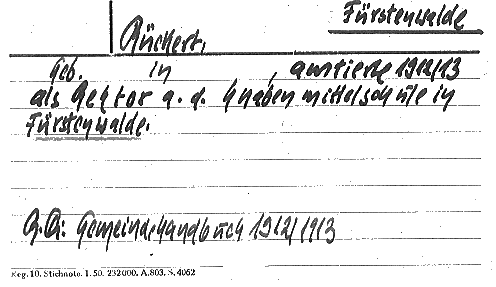 Fürstenwalde
Rückert,
Geb. in , amtierte 1912/13
als Rektor a. d. Knabenmittelschule in
Fürstenwalde.
Q.Q: Gemeindehandbuch 1912/1913
Reg. 10. Stichnote. 1. 50. 232000. A.803. S. 4062